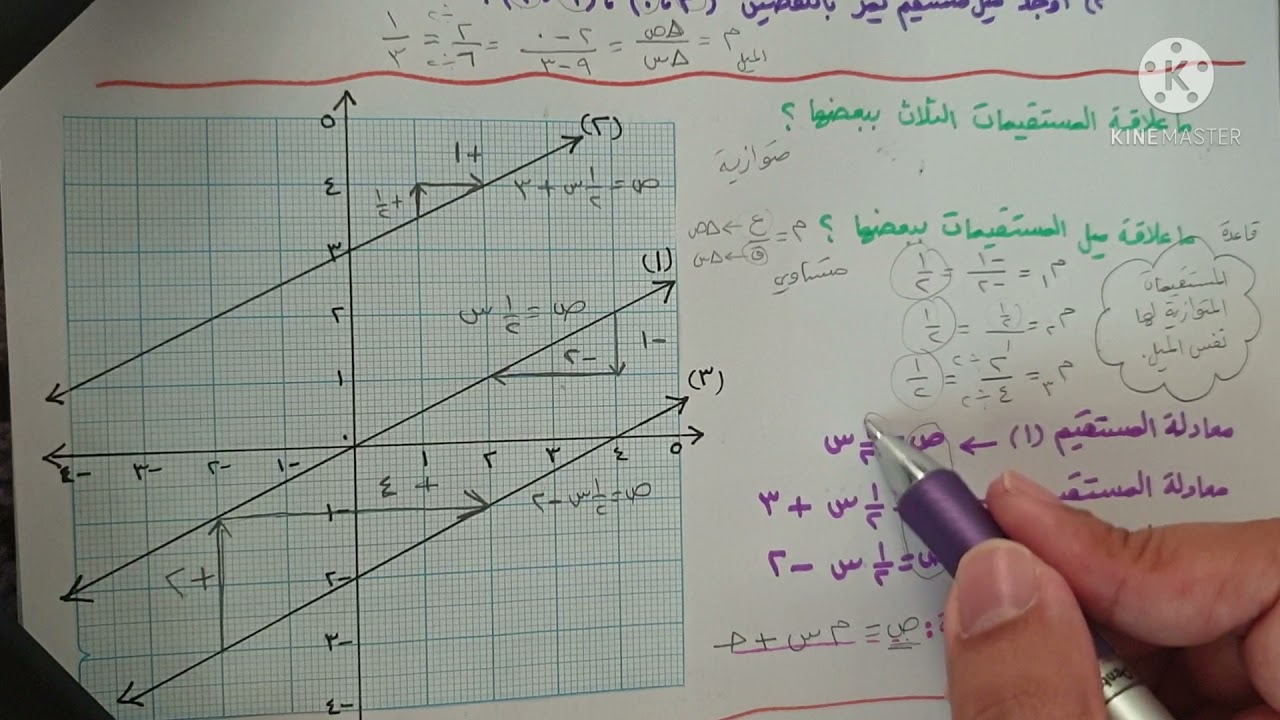 ٢) أوجد ميل مستقيم يمر بالنقطتين
م = Δص / Δس = ٢ - ٠ / ٩ - ٣ = ٢ / ٦ = ١ / ٣
الميل
KINEMASTER
ما علاقة المستقيمات الثلاث ببعضها ؟
متوازية
ما علاقة ميل المستقيمات ببعضها ؟
م = ع → Δص
ق → Δس
متساوي
م١ = -١ / -٢ = ١/٢
م٢ = ١/٢ / ١ = ١/٢
م٣ = ٢ ÷ ٢ / ٤ ÷ ٢ = ١/٢
قاعدة
المستقيمات
المتوازية لها
نفس الميل.
معادلة المستقيم (١) ← ص = ١/٢ س
معادلة المستقيم
١/٢ س + ٣
= ١/٢ س - ٢
ص = م س + جـ
(٢)
ص = ١/٢ س + ٣
+١
+١/٢
(١)
ص = ١/٢ س
-١
-٢
(٣)
ص = ١/٢ س - ٢
+ ٤
+٢
٥
٤
٣
٢
١
٠
-١
-٢
-٣
-٤
-٤ -٣ -٢ -١ ١ ٢ ٣ ٤ ٥